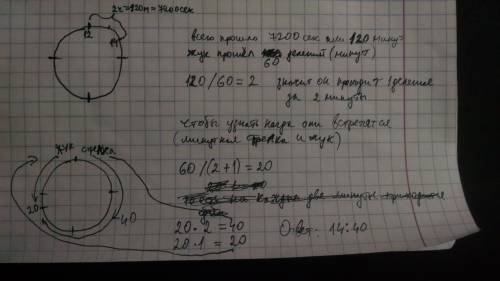 2ч=120м=7200сек
12
14
всего прошло 7200 сек или 120 минут
жук прошёл 60 делений (минут)
120/60=2 значит он проходит 1 деление
за 2 минуты
чтобы узнать когда они встретятся
(минутная стрелка и жук)
жук стрелка
60/(2+1)=20
20
40
20·2=40
20·1=20
Ответ: 14:40